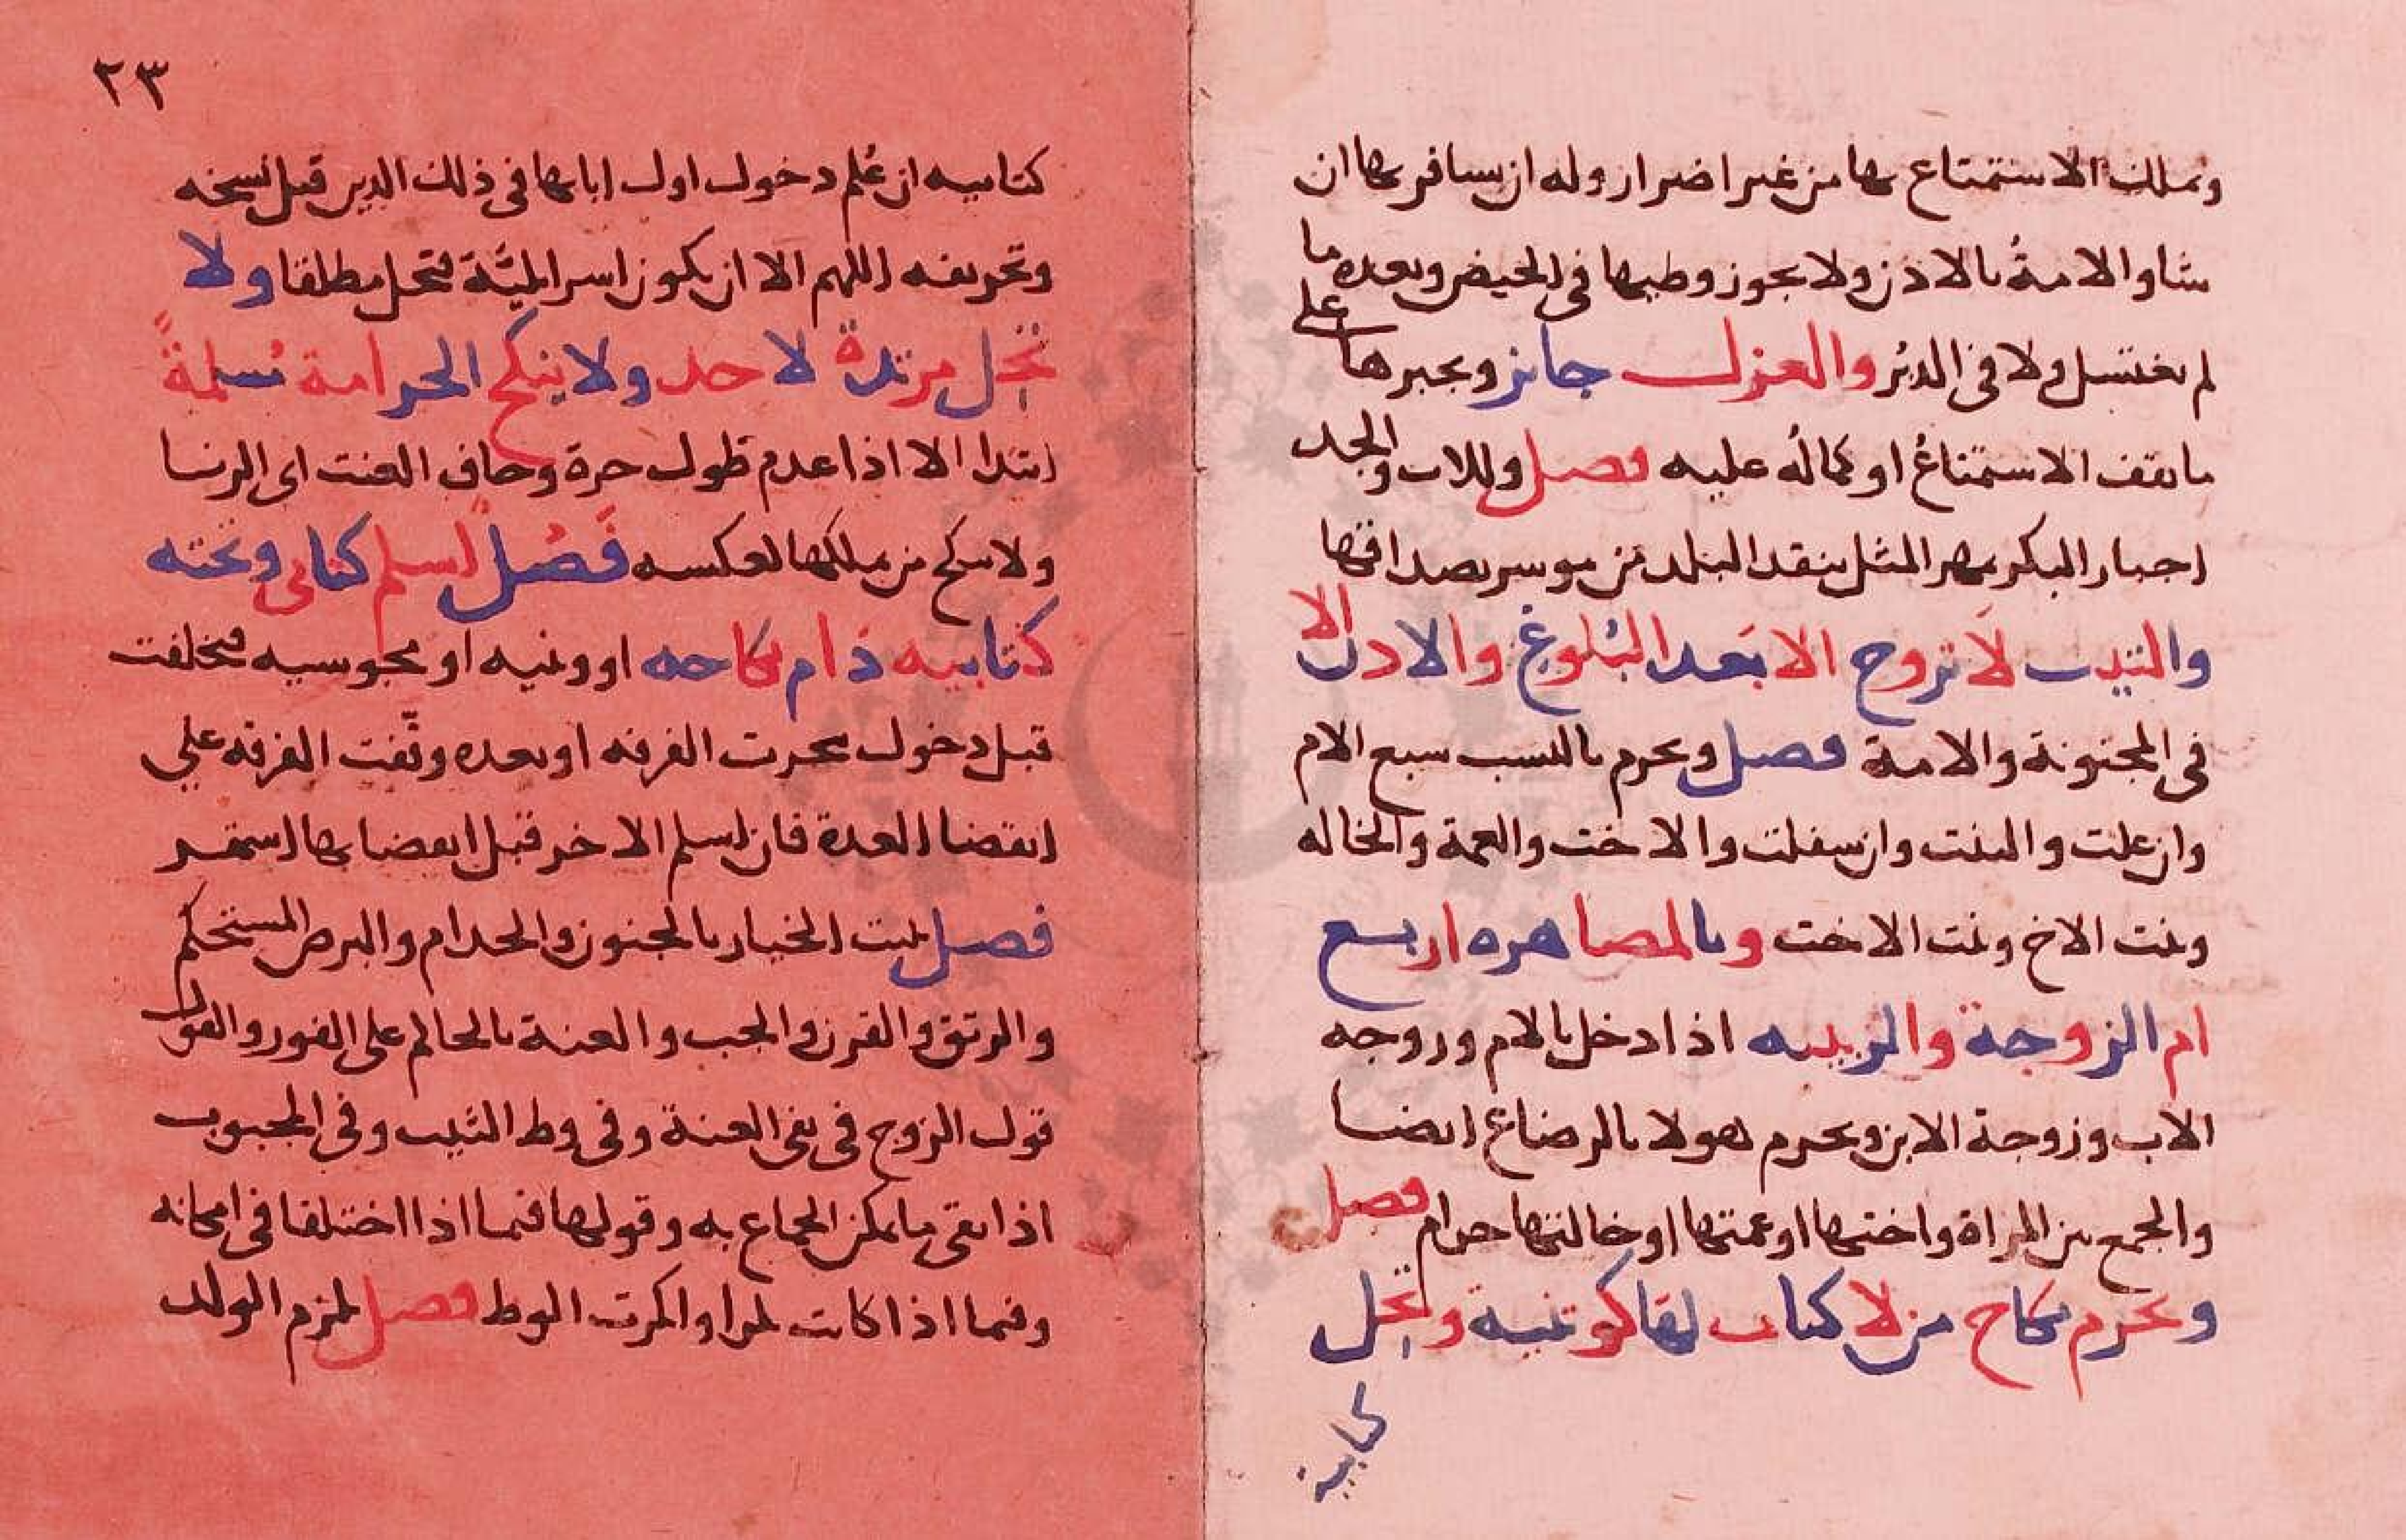 ويملك الاستمتاع بها من غير اضرار وله ان يسافر بها ان
شا والامةُ بالاذن ولا يجوز وطيها فى الحيض وبعده ما
لم يغتسل ولا فى الدبُر والعزل جايز ويجبرها على
ما يقف الاستمتاعُ او كمالُه عليه فصل وللاب والجد
اجبار البكر بمهر المثل بنقد البلد من موسر بصداقها
والثيب لَا تزوج الا بَعد البُلوغ والاذن الا
فى المجنونة والامة فصل ويحرم بالنسب سبع الام
وان علت والبنت وان سفلت والاخت والعمة والخاله
وبنت الاخ وبنت الاخت وبالمصاهره اربع
ام الزوجة والربيبه اذا دخل بالام وزوجه
الاب وزوجة الابن ويحرم هولا بالرضاع ايضا
والجمع بين المراة واختها او عمتها او خالتها حرام فصل
ويحرم نكاح من لا كتاب لها كوثنية وتَحِل
كتابية
٢٣
كتابيه ان عُلم دخول اول ابايها فى ذلك الدين قبل نسخه
وتحريفه اللهم الا ان يكون اسرايليَّة فتحل مطلقا ولا
تَحِل مرتدة لاحد ولا ينكح الحر امة مُسلمةً
ابتدا الا اذا عدم طول حرة وخاف العنت اى الزنا
ولا ينكح من يملكها لعكسه فَصُل اسلم كتابى وتحته
كتابيه دَام نكاحه او وثنيه او مجوسيه فتخلفت
قبل دخول تنجزت الفرقه او بعده وقّفت الفرقه على
انقضا العدة فان اسلم الاخر قبل انقضايها استمر
فصل يثبت الخيار بالجنون والجدام والبرص المستحكم
والرتق والقرن والجب والعنة بالحاكم على الفور والقول
قول الزوج فى نفى العنة وفى وط الثيب وفى المجبوب
اذا بقى ما يمكن الجماع به وقولها فيما اذا اختلفا فى امكانه
وفيما اذا كانت بكرا وانكرت الوط فصل يلزم الولد